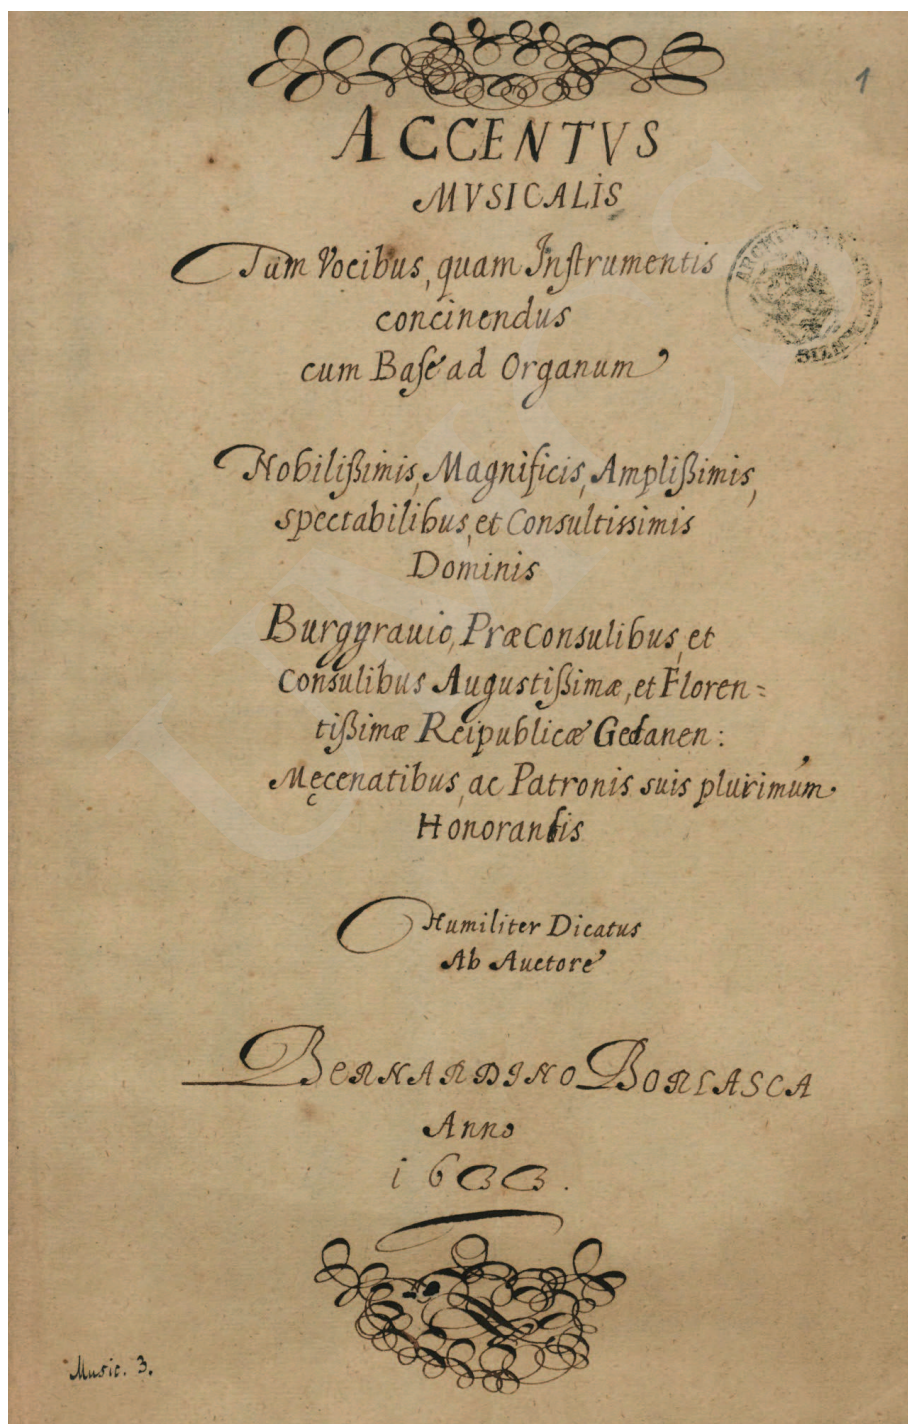 1
ACCENTVS
MVSICALIS
Tam Vocibus, quam Inſtrumentis
concinendus
cum Baſe ad Organum
Nobilißimis, Magnificis, Amplißimis,
spectabilibus, et Consultissimis
Dominis
Burggrauio, Præconsulibus, et
Consulibus Augustißimæ, et Floren=
tißimæ Reipublicæ Gedanen:
Męcenatibus, ac Patronis suis plurimùm
Honorandis
Humiliter Dicatus
Ab Auctore
BERNARDINO BORLASCA
Anno
i633.
Music. 3.